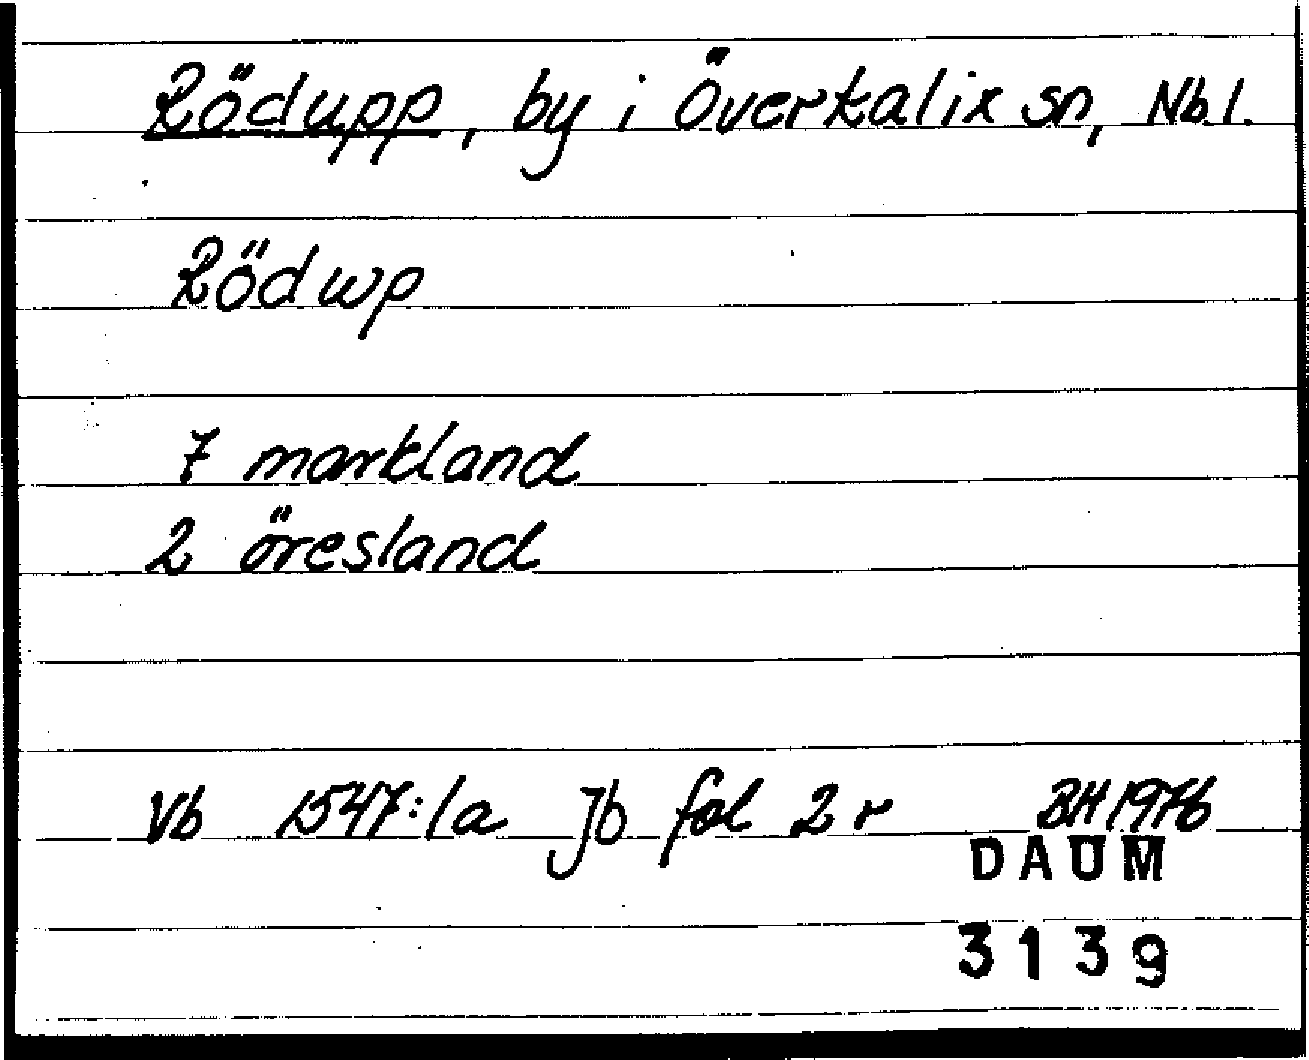 Rödupp, by i Överkalix sn, Nb.l.
Rödwp
7 markland
2 öresland
Vb 1547:1a Jb fol 2r BH 1976
DAUM
3139